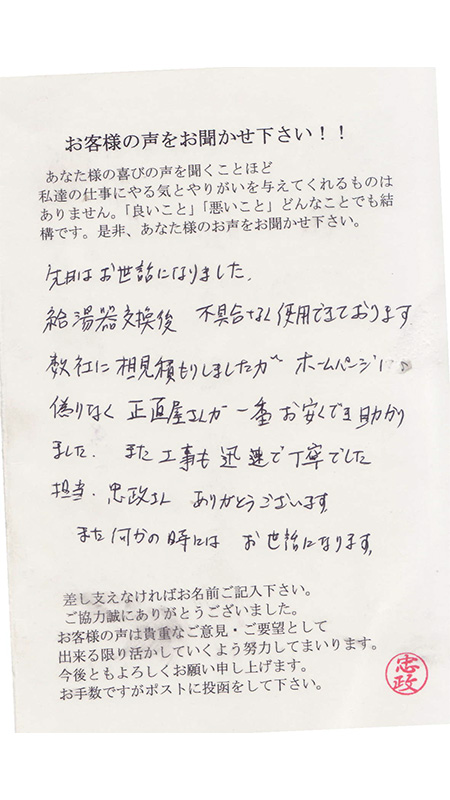 お客様の声をお聞かせ下さい！！
あなた様の喜びの声を聞くことほど
私達の仕事にやる気とやりがいを与えてくれるものは
ありません。「良いこと」「悪いこと」どんなことでも結
構です。是非、あなた様のお声をお聞かせ下さい。
先日はお世話になりました。
給湯器交換後 不具合なく使用できております
数社に相見積もりしましたが ホームページに
偽りなく 正直屋さんが一番お安くでき助かり
ました. また工事も迅速で丁寧でした
担当・忠政さん ありがとうございます
また何かの時には お世話になります。
差し支えなければお名前ご記入下さい。
ご協力誠にありがとうございました。
お客様の声は貴重なご意見・ご要望として
出来る限り活かしていくよう努力してまいります。
今後ともよろしくお願い申し上げます。
お手数ですがポストに投函をして下さい。
忠政